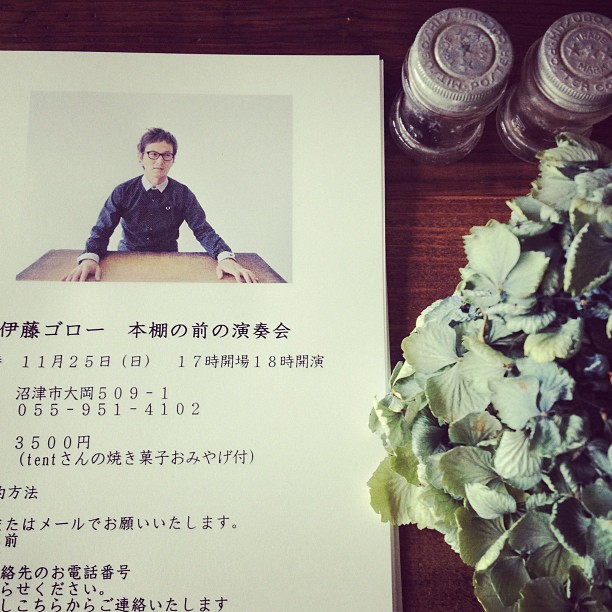 伊藤ゴロー 本棚の前の演奏会
11月25日(日) 17時開場18時開演
沼津市大岡509-1
055-951-4102
3500円
(tentさんの焼き菓子おみやげ付)
方法
たはメールでお願いいたします。
前
絡先のお電話番号
らせください。
しこちらからご連絡いたします